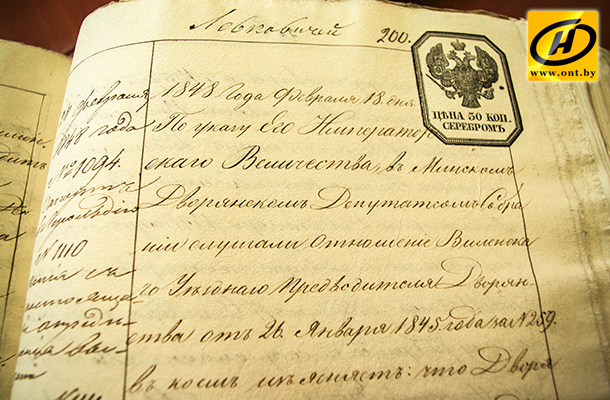 Левковичей 200.
www.ont.by
ЦѢНА 30 КОП.
СЕРЕБРОМЪ
18 февраля
1848 года
№ 21094.
№ 1110
1848. Года Февраля 18 дня.
По указу Его Император-
скаго Величества, въ Минскомъ
Дворянскомъ Депутатскомъ Собра
ніи слушали отношение Виленска
го Уѣзднаго Предводителя Дворян-
ства отъ 26. Января 1845. года за № 259.
въ коемъ изъясняетъ: что Дворя